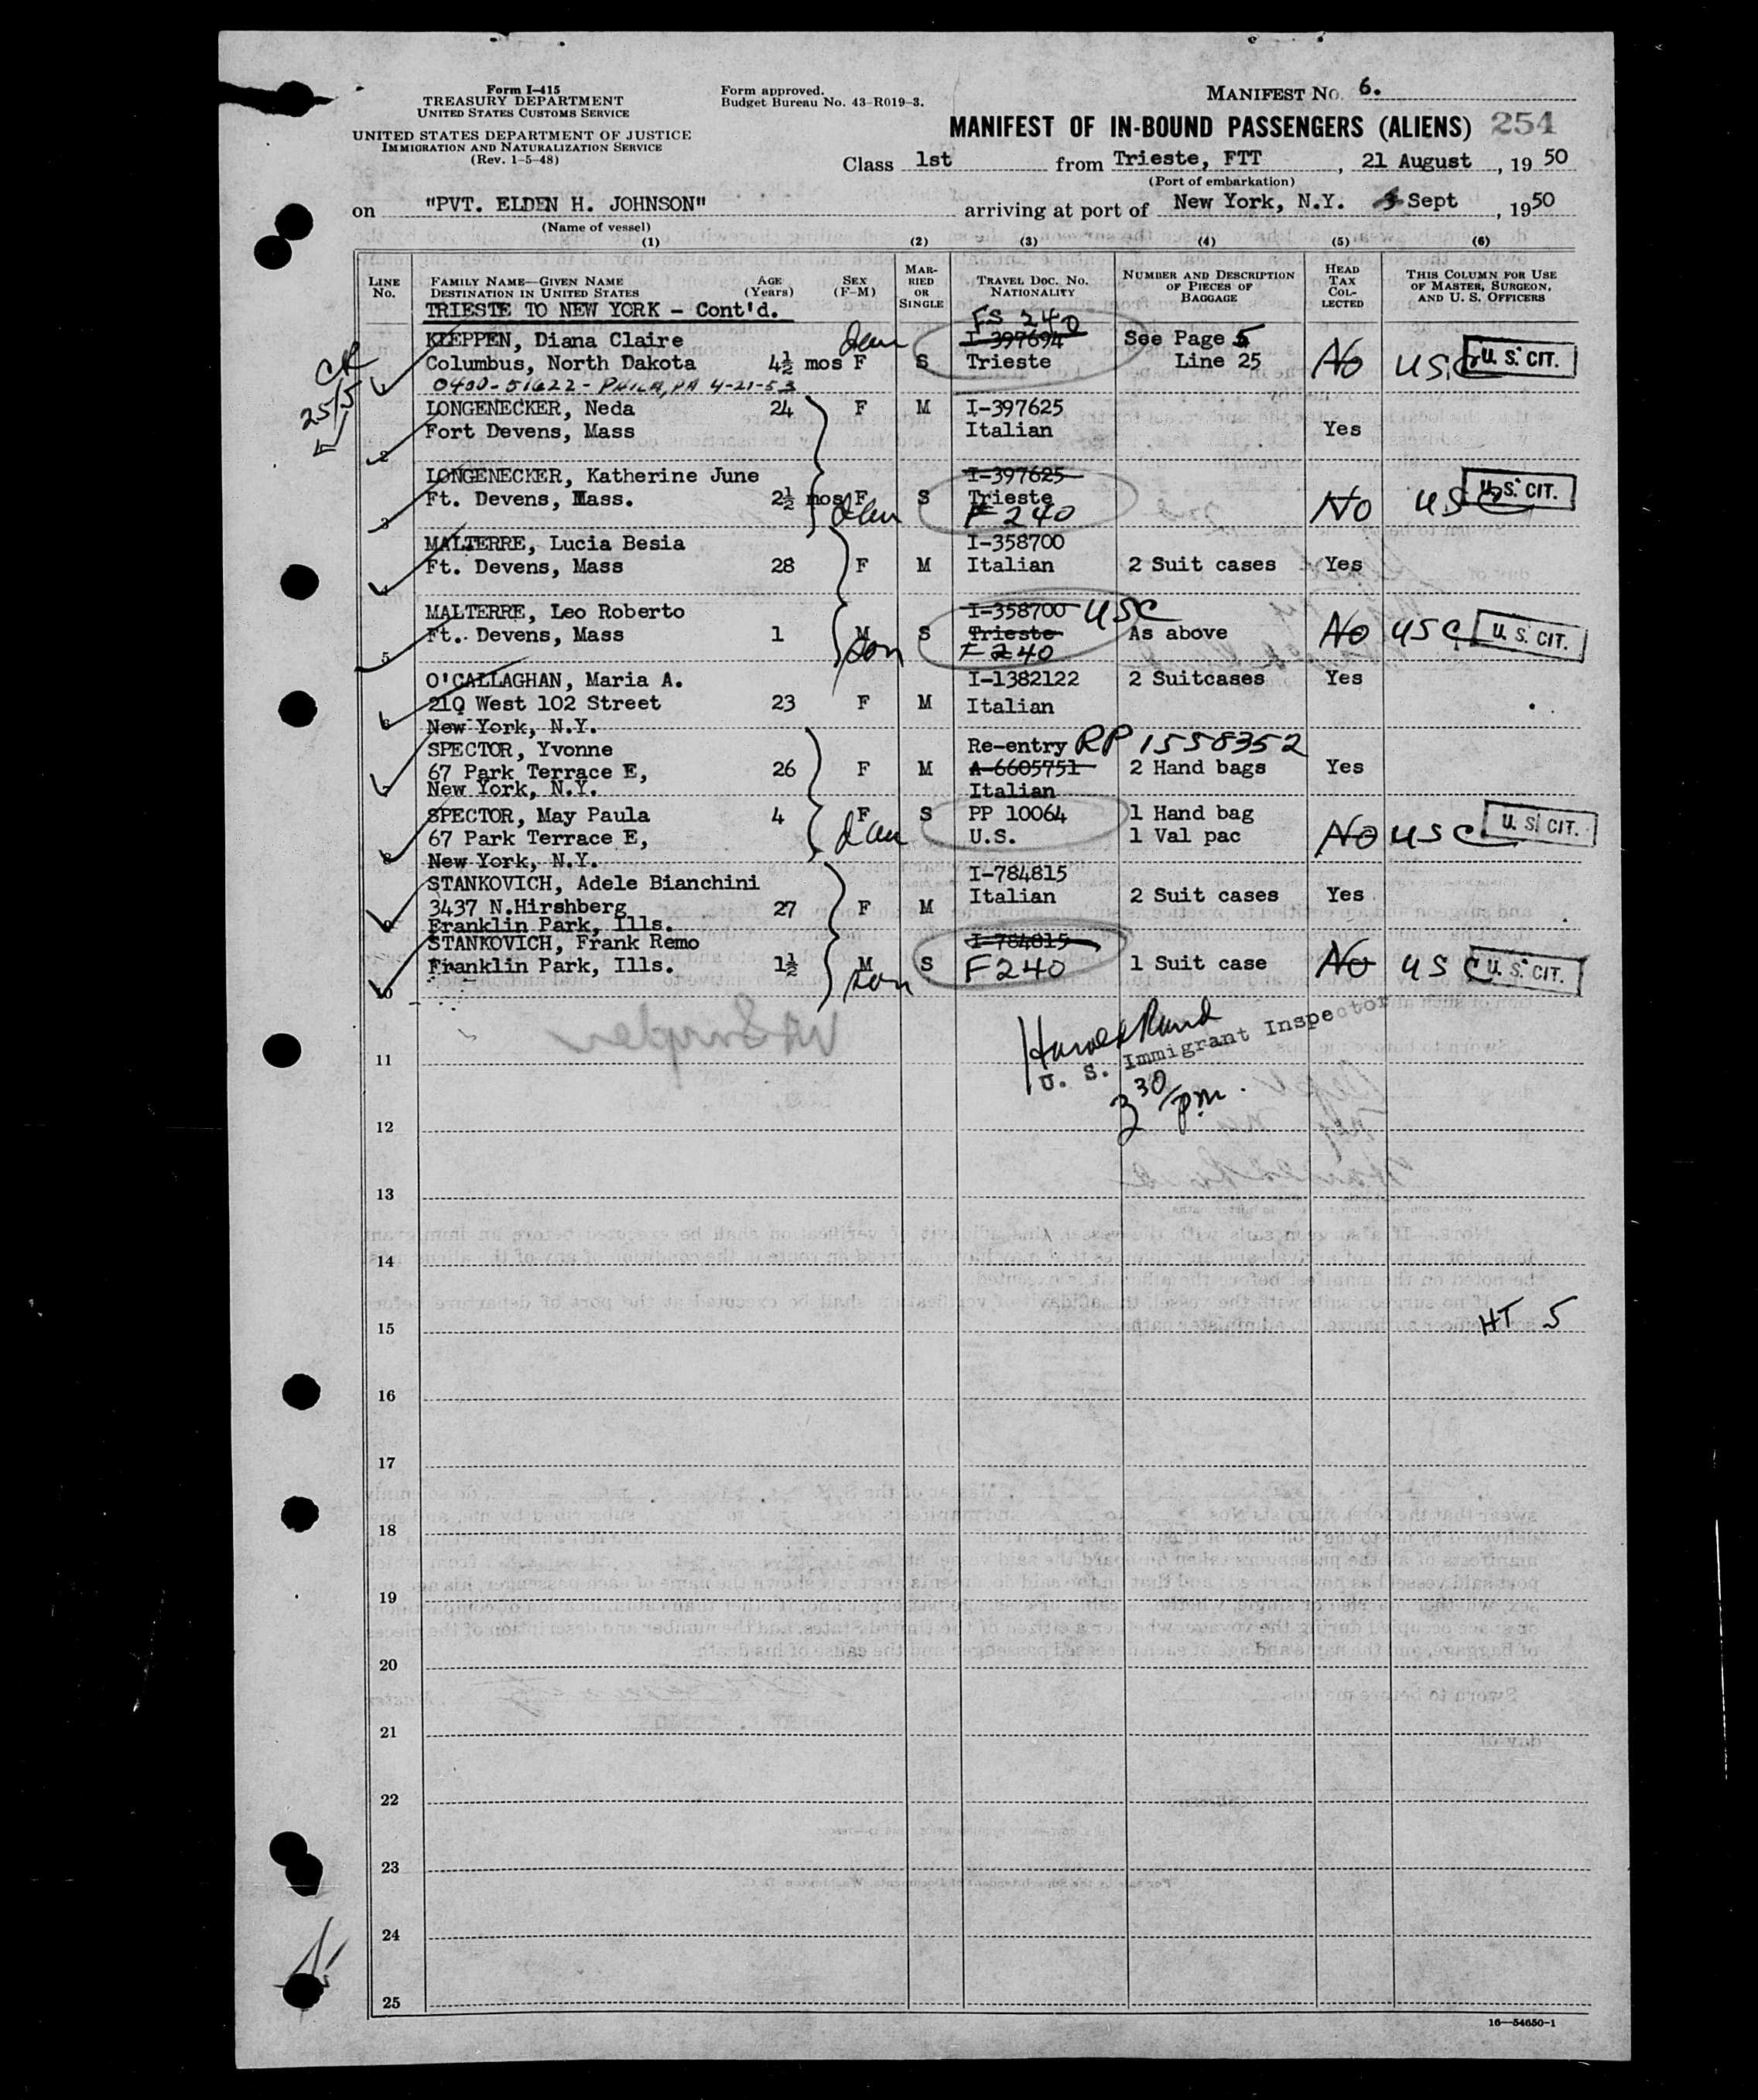 Form I-415
TREASURY DEPARTMENT
UNITED STATES CUSTOMS SERVICE
UNITED STATES DEPARTMENT OF JUSTICE
IMMIGRATION AND NATURALIZATION SERVICE
(Rev. 1-5-48)
Form approved.
Budget Bureau No. 43-R019-3.
MANIFEST NO. 6.
MANIFEST OF IN-BOUND PASSENGERS (ALIENS) 254
Class 1st from Trieste, FTT, 21 August, 1950
(Port of embarkation)
on "PVT. ELDEN H. JOHNSON" arriving at port of New York, N.Y. 3 Sept, 1950
(Name of vessel)
(1) (2) (3) (4) (5) (6)
LINE No.
FAMILY NAME—GIVEN NAME
DESTINATION IN UNITED STATES
AGE (Years)
SEX (F-M)
MARRIED OR SINGLE
TRAVEL DOC. No. NATIONALITY
NUMBER AND DESCRIPTION OF PIECES OF BAGGAGE
HEAD TAX COLLECTED
THIS COLUMN FOR USE OF MASTER, SURGEON, AND U. S. OFFICERS
TRIESTE TO NEW YORK - Cont'd.
FS 240
KLEPPEN, Diana Claire I-397694 See Page 5
Columbus, North Dakota 4½ mos F S Trieste Line 25 No USC U. S. CIT.
0400-51622- PHILA, PA 4-21-53
LONGENECKER, Neda 24 F M I-397625
Fort Devens, Mass Italian Yes
2
LONGENECKER, Katherine June I-397625
Ft. Devens, Mass. 2½ mos F S Trieste No USC U. S. CIT.
3 F 240
MALTERRE, Lucia Besia I-358700
Ft. Devens, Mass 28 F M Italian 2 Suit cases Yes
4
MALTERRE, Leo Roberto I-358700 USC
Ft. Devens, Mass 1 M S Trieste As above No USC U. S. CIT.
5 son F 240
O'CALLAGHAN, Maria A. I-1382122 2 Suitcases Yes
210 West 102 Street 23 F M Italian
6 New York, N.Y.
SPECTOR, Yvonne Re-entry RP 1558352
67 Park Terrace E, 26 F M A-6605751 2 Hand bags Yes
7 New York, N.Y. Italian
SPECTOR, May Paula 4 F S PP 10064 1 Hand bag
67 Park Terrace E, U.S. 1 Val pac No USC U. S. CIT.
8 New York, N.Y.
STANKOVICH, Adele Bianchini I-784815
3437 N.Hirshberg 27 F M Italian 2 Suit cases Yes
9 Franklin Park, Ills.
STANKOVICH, Frank Remo I-784815
Franklin Park, Ills. 1½ M S F240 1 Suit case No USC U. S. CIT.
10 son
U. S. Immigrant Inspector
3 30 pm.
11
12
13
14
15 HT 5
16
17
18
19
20
21
22
23
24
25
16—54650-1